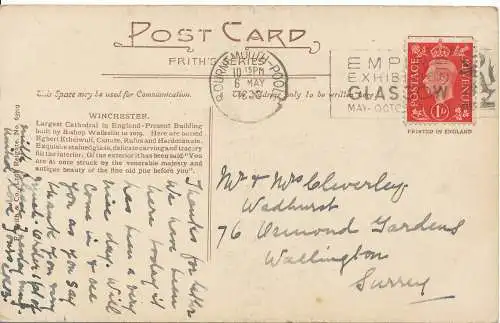 POST CARD
FRITH'S SERIES
This Space may be used for Communication.
The Address only to be written here.
BOURNEMOUTH-POOLE
10 15PM
6 MAY
1938
EMPIRE
EXHIBITION
GLASGOW
MAY-OCTOBER
POSTAGE
REVENUE
1D
PRINTED IN ENGLAND
WINCHESTER.
Largest Cathedral in England-Present Building
built by Bishop Walkelin in 1079. Here are buried
Egbert Ethelwulf, Canute, Rufus and Hardicanute.
Exquisite stained glass, delicate carving and tracery
fill the interior. Of the exterior it has been said "You
are at once struck by the venerable majesty and
antique beauty of the fine old pile before you".
Thanks for letter
We have been
here today it
has been a very
nice day. Will
come in & see
you as you say
thank you very
much.
love
Yours
Mr & Mrs Cleverley
Wadhurst
76 Ormond Gardens
Wallington
Surrey